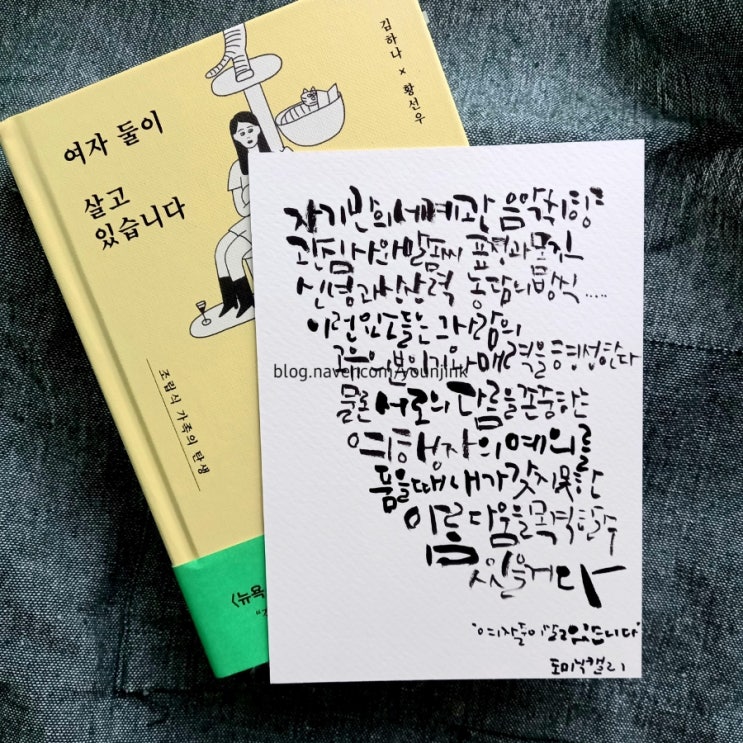 김하나 × 황선우
여자 둘이
살고
있습니다
조립식 가족의 탄생
〈뉴욕
자기만의 세계관 음악취향
관심사와 말솜씨 표정과 몸짓
신념과 상상력 농담의 방식 .....
이런 요소들은 그 사람의
고유의 분위기와 매력을 형성한다
blog.naver.com/younjink
물론 서로의 다름을 존중하는
여행자의 예의를
품을 때 내가 갖지 못한
아름다움을 목격할 수
있을 거다
"여자 둘이 살고 있습니다"
캘리